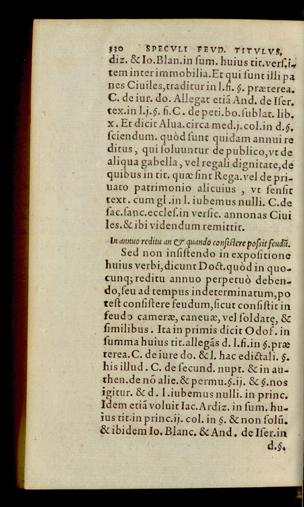 330 SPECVLI FEVD. TITVLVS,
diz. & Io. Blan. in sum. huius tit. vers. i-
tem inter immobilia. Et qui sunt illi pa
nes Ciuiles, traditur in l. fi. §. præterea.
C. de iur. do. Allegat etiã And. de Iser.
tex. in l. j. §. fi C. de peti. bo. sublat. lib.
x. Et dicit Alua. circa med. j. col. in d. §.
sciendum. quòd sunt quidam annui re
ditus, qui soluuntur de publico, vt de
aliqua gabella, vel regali dignitate, de
quibus in tit. quæ sint Rega. vel de pri-
uato patrimonio alicuius, vt sensit
text. cum gl. in l. iubemus nulli. C. de
sac. sanc. eccles. in versic. annonas Ciui
les. & ibi videndum remittit.
In annuo reditu an & quando consistere possit feudũ.
Sed non insistendo in expositione
huius verbi, dicunt Doct. quòd in quo-
cunq; reditu annuo perpetuò deben-
do, seu ad tempus indeterminatum, po
test consistere feudum, sicut consistit in
feudo cameræ, caneuæ, vel soldatę, &
similibus. Ita in primis dicit Odof. in
summa huius tit. allegãs d. l. fi. in §. præ
terea. C. de iure do. & l. hac edictali. §.
his illud. C. de secund. nupt. & in au-
then. de nõ alie. & permu. §. ij. & §. nos
igitur. & d. l. iubemus nulli. in princ.
Idem etiã voluit Iac. Ardiz. in sum. hu-
ius tit. in princ. ij. col. in §. & non solũ.
& ibidem Io. Blanc. & And. de Iser. in
d. §.